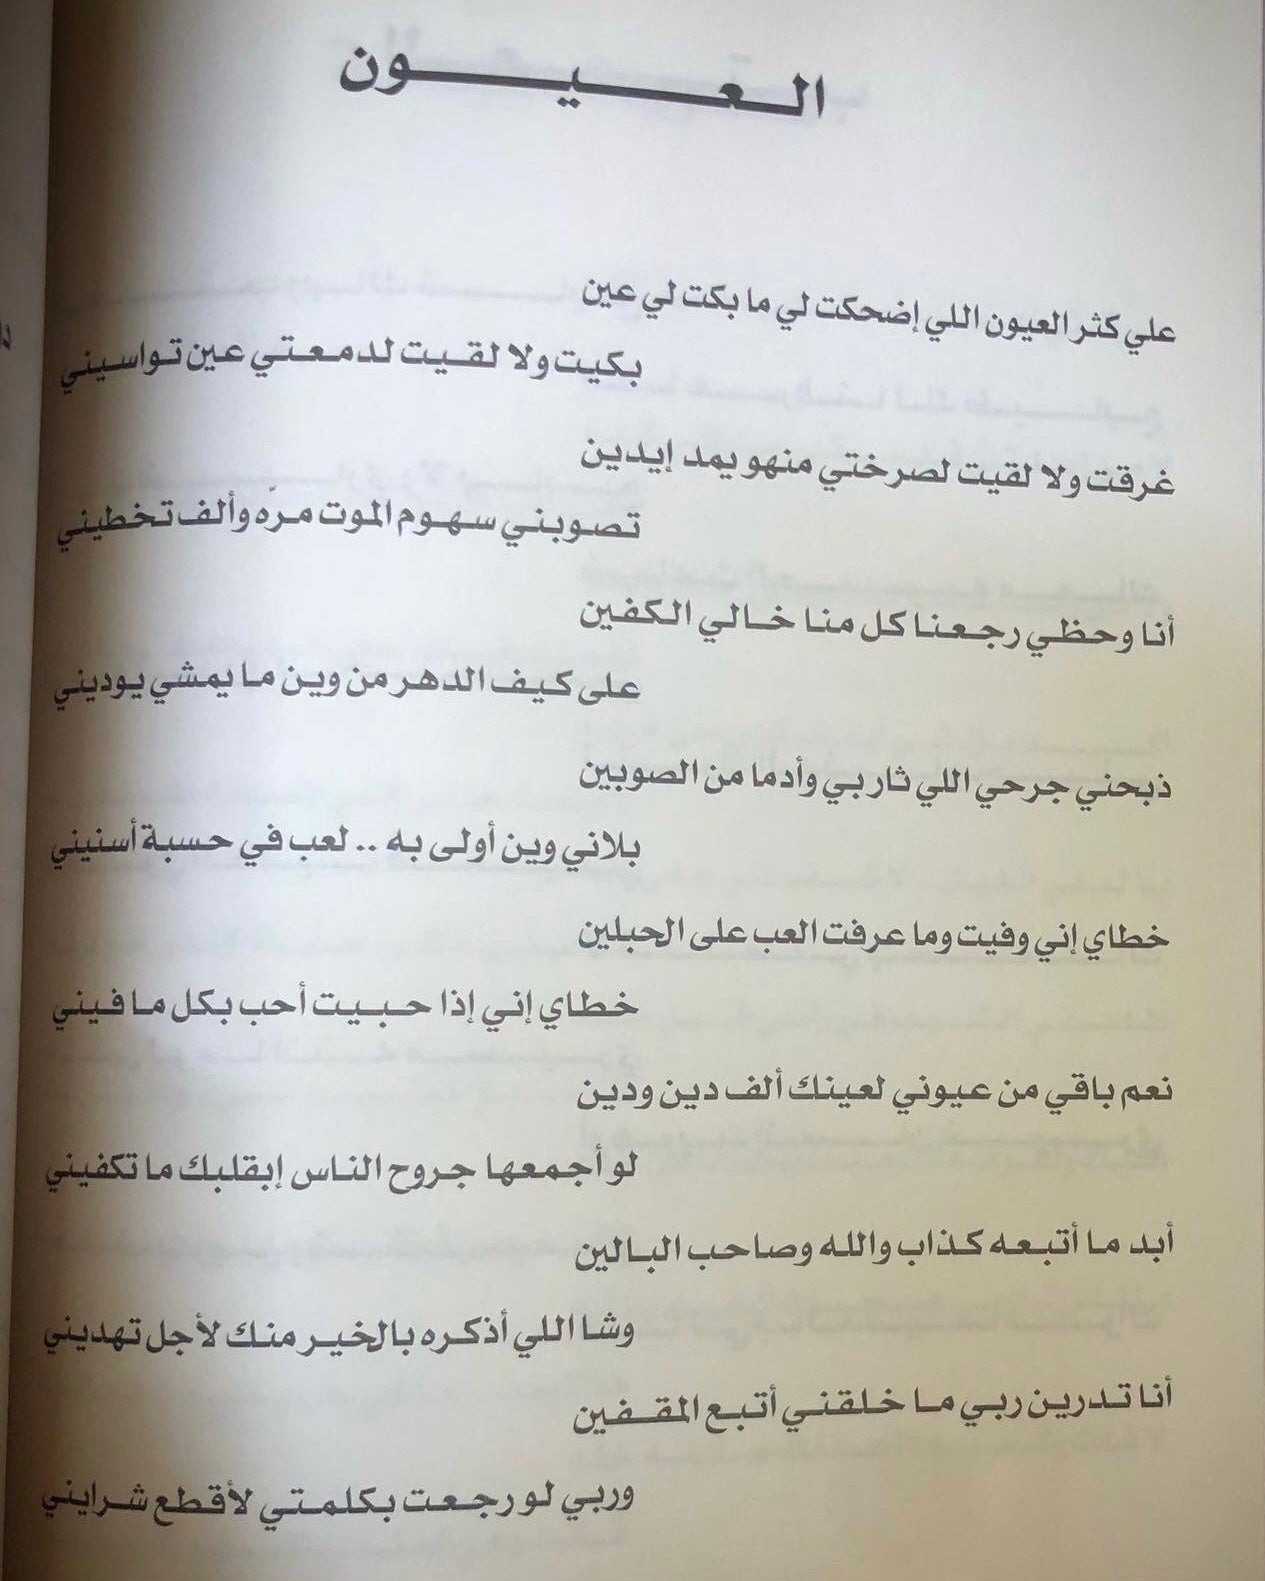 العيون
علي كثر العيون اللي إضحكت لي ما بكت لي عين
بكيت ولا لقيت لدمعتي عين تواسيني
غرقت ولا لقيت لصرختي منهو يمد إيدين
تصوبني سهوم الموت مرّه وألف تخطيني
أنا وحظي رجعنا كل منا خالي الكفين
على كيف الدهر من وين ما يمشي يوديني
ذبحني جرحي اللي ثار بي وأدما من الصوبين
بلاني وين أولى به .. لعب في حسبة أسنيني
خطاي إني وفيت وما عرفت العب على الحبلين
خطاي إني إذا حبيت أحب بكل ما فيني
نعم باقي من عيوني لعينك ألف دين ودين
لو أجمعها جروح الناس إبقلبك ما تكفيني
أبد ما أتبعه كذاب والله وصاحب البالين
وشا اللي أذكره بالخير منك لأجل تهديني
أنا تدرين ربي ما خلقني أتبع المقفين
وربي لو رجعت بكلمتي لأقطع شرايني